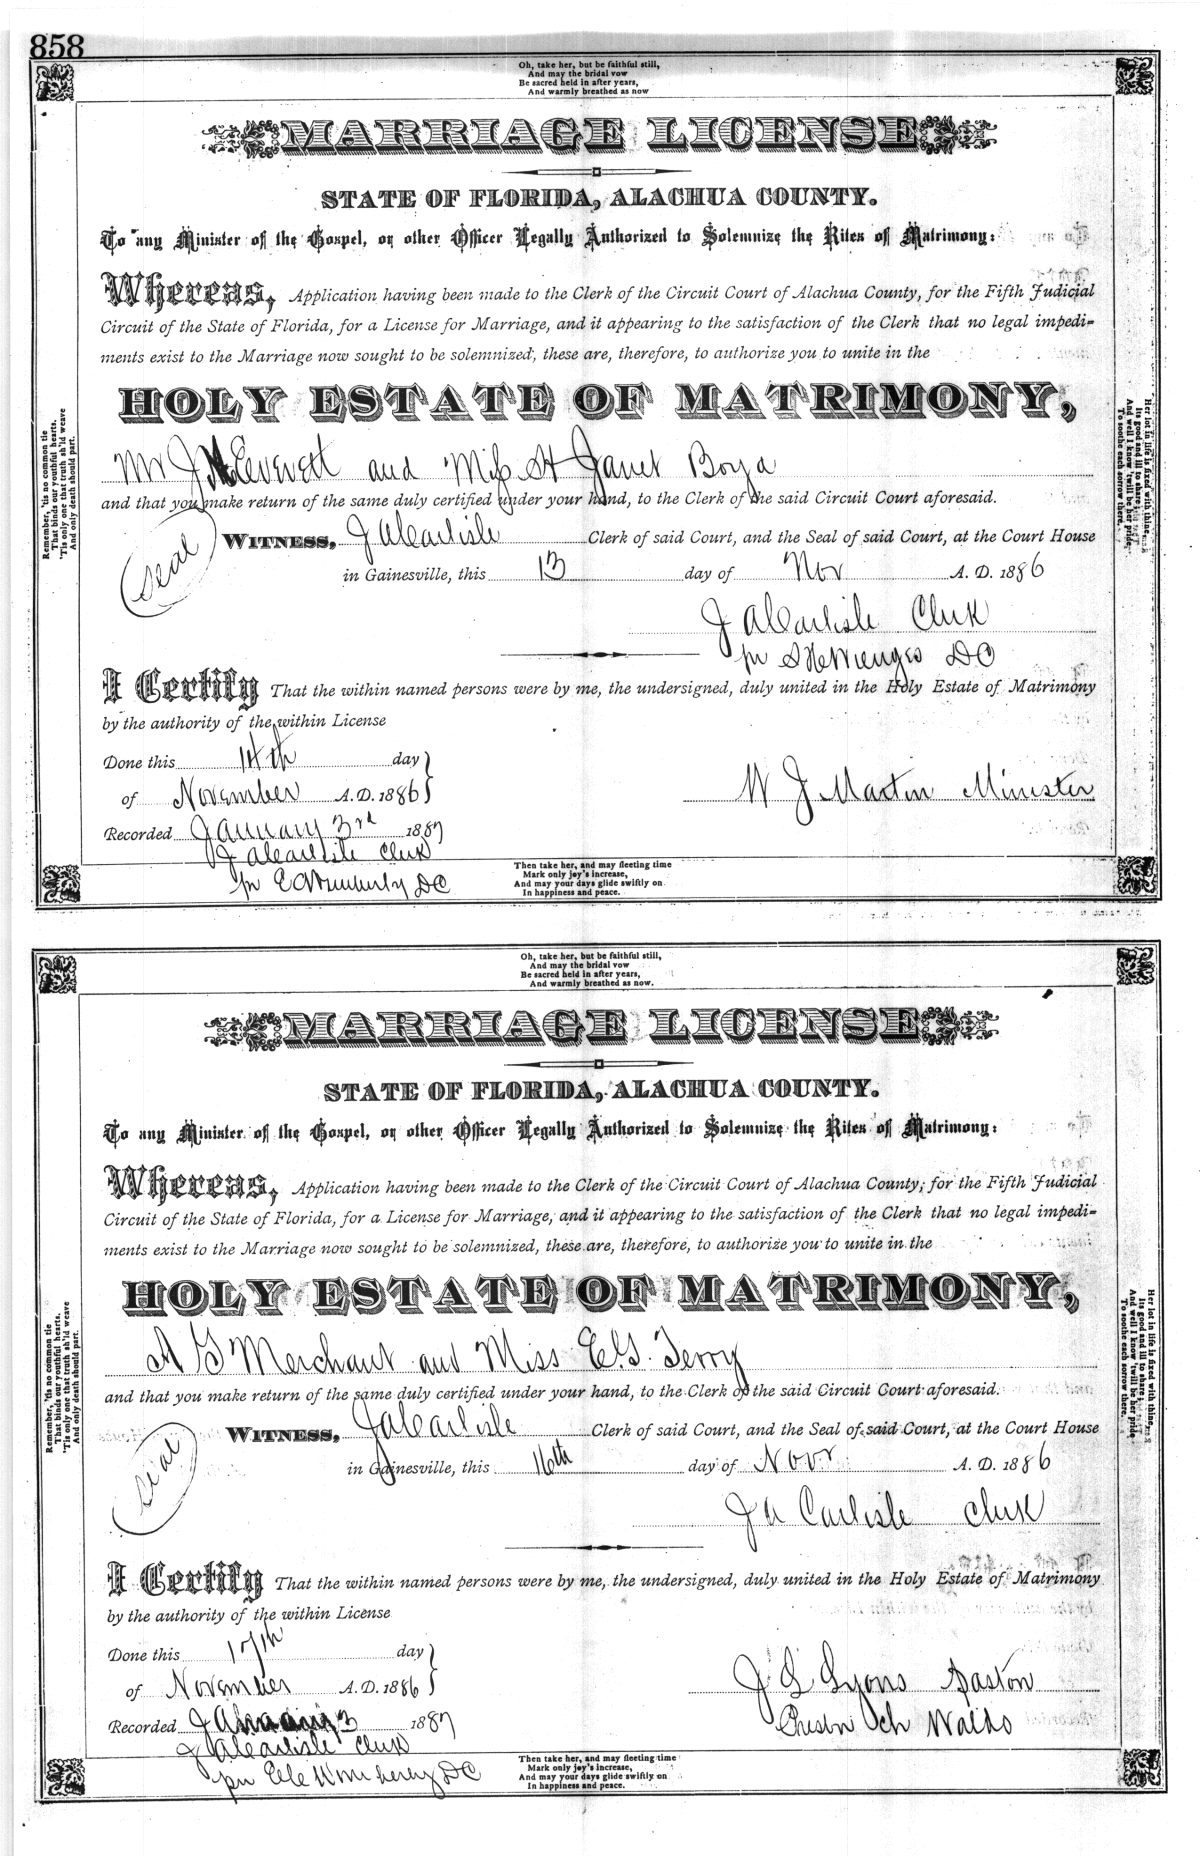 858
Oh, take her, but be faithful still,
And may the bridal vow
Be sacred held in after years,
And warmly breathed as now
MARRIAGE LICENSE
STATE OF FLORIDA, ALACHUA COUNTY.
To any Minister of the Gospel, or other Officer Legally Authorized to Solemnize the Rites of Matrimony:
Whereas, Application having been made to the Clerk of the Circuit Court of Alachua County, for the Fifth Judicial
Circuit of the State of Florida, for a License for Marriage, and it appearing to the satisfaction of the Clerk that no legal impedi-
ments exist to the Marriage now sought to be solemnized, these are, therefore, to authorize you to unite in the
HOLY ESTATE OF MATRIMONY,
Mr J Everett and Miss H Janet Boyd
and that you make return of the same duly certified under your hand, to the Clerk of the said Circuit Court aforesaid.
(seal) WITNESS, J A Carlisle Clerk of said Court, and the Seal of said Court, at the Court House
in Gainesville, this 13 day of Nov A. D. 1886
J A Carlisle Clerk
pr S H Wienges DC
I Certify That the within named persons were by me, the undersigned, duly united in the Holy Estate of Matrimony
by the authority of the within License
Done this 14th day
of November A. D. 1886
W J Martin Minister
Recorded January 3rd 1887
J A Carlisle Clerk
pr E C Wimberly DC
Remember, 'tis no common tie
That binds our youthful hearts,
'Tis only one that truth sh'ld weave
And only death should part.
Her lot in life is fixed with thine,
Its good and ill to share;
And well I know 'twill be her pride
To soothe each sorrow there.
Then take her, and may fleeting time
Mark only joy's increase,
And may your days glide swiftly on
In happiness and peace.
Oh, take her, but be faithful still,
And may the bridal vow
Be sacred held in after years,
And warmly breathed as now.
MARRIAGE LICENSE
STATE OF FLORIDA, ALACHUA COUNTY.
To any Minister of the Gospel, or other Officer Legally Authorized to Solemnize the Rites of Matrimony:
Whereas, Application having been made to the Clerk of the Circuit Court of Alachua County, for the Fifth Judicial
Circuit of the State of Florida, for a License for Marriage, and it appearing to the satisfaction of the Clerk that no legal impedi-
ments exist to the Marriage now sought to be solemnized, these are, therefore, to authorize you to unite in the
HOLY ESTATE OF MATRIMONY,
A G Merchant and Miss E. G. Terry
and that you make return of the same duly certified under your hand, to the Clerk of the said Circuit Court aforesaid.
(seal) WITNESS, J A Carlisle Clerk of said Court, and the Seal of said Court, at the Court House
in Gainesville, this 16th day of Novr A. D. 1886
J A Carlisle Clerk
I Certify That the within named persons were by me, the undersigned, duly united in the Holy Estate of Matrimony
by the authority of the within License
Done this 17th day
of November A. D. 1886
J G Lyons Pastor
Presbn Ch Waldo
Recorded January 3 1887
J A Carlisle Clerk
pr E C Wimberly DC
Remember, 'tis no common tie
That binds our youthful hearts.
'Tis only one that truth sh'ld weave
And only death should part.
Her lot in life is fixed with thine,
Its good and ill to share;
And well I know 'twill be her pride
To soothe each sorrow there.
Then take her, and may fleeting time
Mark only joy's increase,
And may your days glide swiftly on
In happiness and peace.